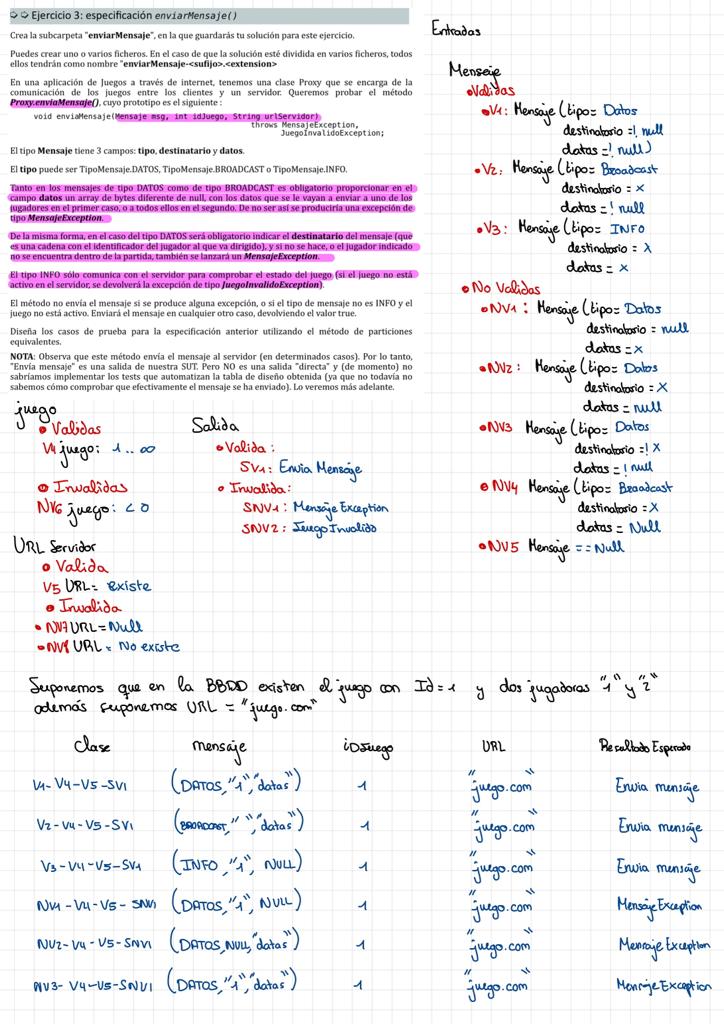 ➭ ➭ Ejercicio 3: especificación enviarMensaje()
Crea la subcarpeta "enviarMensaje", en la que guardarás tu solución para este ejercicio.
Puedes crear uno o varios ficheros. En el caso de que la solución esté dividida en varios ficheros, todos
ellos tendrán como nombre "enviarMensaje-<sufijo>.<extension>
En una aplicación de Juegos a través de internet, tenemos una clase Proxy que se encarga de la
comunicación de los juegos entre los clientes y un servidor. Queremos probar el método
Proxy.enviaMensaje(), cuyo prototipo es el siguiente :
void enviaMensaje(Mensaje msg, int idJuego, String urlServidor)
throws MensajeException,
JuegoInvalidoException;
El tipo Mensaje tiene 3 campos: tipo, destinatario y datos.
El tipo puede ser TipoMensaje.DATOS, TipoMensaje.BROADCAST o TipoMensaje.INFO.
Tanto en los mensajes de tipo DATOS como de tipo BROADCAST es obligatorio proporcionar en el
campo datos un array de bytes diferente de null, con los datos que se le vayan a enviar a uno de los
jugadores en el primer caso, o a todos ellos en el segundo. De no ser así se produciría una excepción de
tipo MensajeException.
De la misma forma, en el caso del tipo DATOS será obligatorio indicar el destinatario del mensaje (que
es una cadena con el identificador del jugador al que va dirigido), y si no se hace, o el jugador indicado
no se encuentra dentro de la partida, también se lanzará un MensajeException.
El tipo INFO sólo comunica con el servidor para comprobar el estado del juego (si el juego no está
activo en el servidor, se devolverá la excepción de tipo JuegoInvalidoException).
El método no envía el mensaje si se produce alguna excepción, o si el tipo de mensaje no es INFO y el
juego no está activo. Enviará el mensaje en cualquier otro caso, devolviendo el valor true.
Diseña los casos de prueba para la especificación anterior utilizando el método de particiones
equivalentes.
NOTA: Observa que este método envía el mensaje al servidor (en determinados casos). Por lo tanto,
"Envía mensaje" es una salida de nuestra SUT. Pero NO es una salida "directa" y (de momento) no
sabríamos implementar los tests que automatizan la tabla de diseño obtenida (ya que no todavía no
sabemos cómo comprobar que efectivamente el mensaje se ha enviado). Lo veremos más adelante.
Entradas
Mensaje
• Validas
• V1: Mensaje (tipo= Datos
destinatario =! null
datas =! null)
• V2: Mensaje (tipo= Broadcast
destinatario = x
datas =! null
• V3: Mensaje (tipo= INFO
destinatario = x
datas = x
• No Validas
• NV1: Mensaje (tipo= Datos
destinatario = null
datas = x
• NV2: Mensaje (tipo= Datos
destinatario = X
datas = null
• NV3 Mensaje (tipo= Datos
destinatario =! X
datas =! null
• NV4 Mensaje (tipo= Broadcast
destinatario = X
datas = Null
• NV5 Mensaje == Null
juego
• Validas
V4 juego: 1 .. ∞
• Invalidas
NV6 juego: < 0
URL Servidor
• Valida
V5 URL = existe
• Invalida
• NV7 URL = Null
• NV8 URL = No existe
Salida
• Valida:
SV1: Envia Mensaje
• Invalida:
SNV1: Mensaje Exception
SNV2: Juego Invalido
Suponemos que en la BBDD existen el juego con Id = 1 y dos jugadoras "1" y "2"
además suponemos URL = "juego.com"
Clase mensaje iDJuego URL Resultado Esperado
V1- V4-V5 -SV1 (DATOS, "1", "datas") 1 "juego.com" Envia mensaje
V2-V4-V5-SV1 (BROADCAST, " ", "datas") 1 "juego.com" Envia mensaje
V3-V4-V5-SV1 (INFO, "1", NULL) 1 "juego.com" Envia mensaje
NV1 -V4-V5- SNV1 (DATOS, "1", NULL) 1 "juego.com" Mensaje Exception
NV2-V4-V5-SNV1 (DATOS, NULL, "datas") 1 "juego.com" Mensaje Exception
NV3- V4-V5-SNV1 (DATOS, "1", "datas") 1 "juego.com" Mensaje Exception